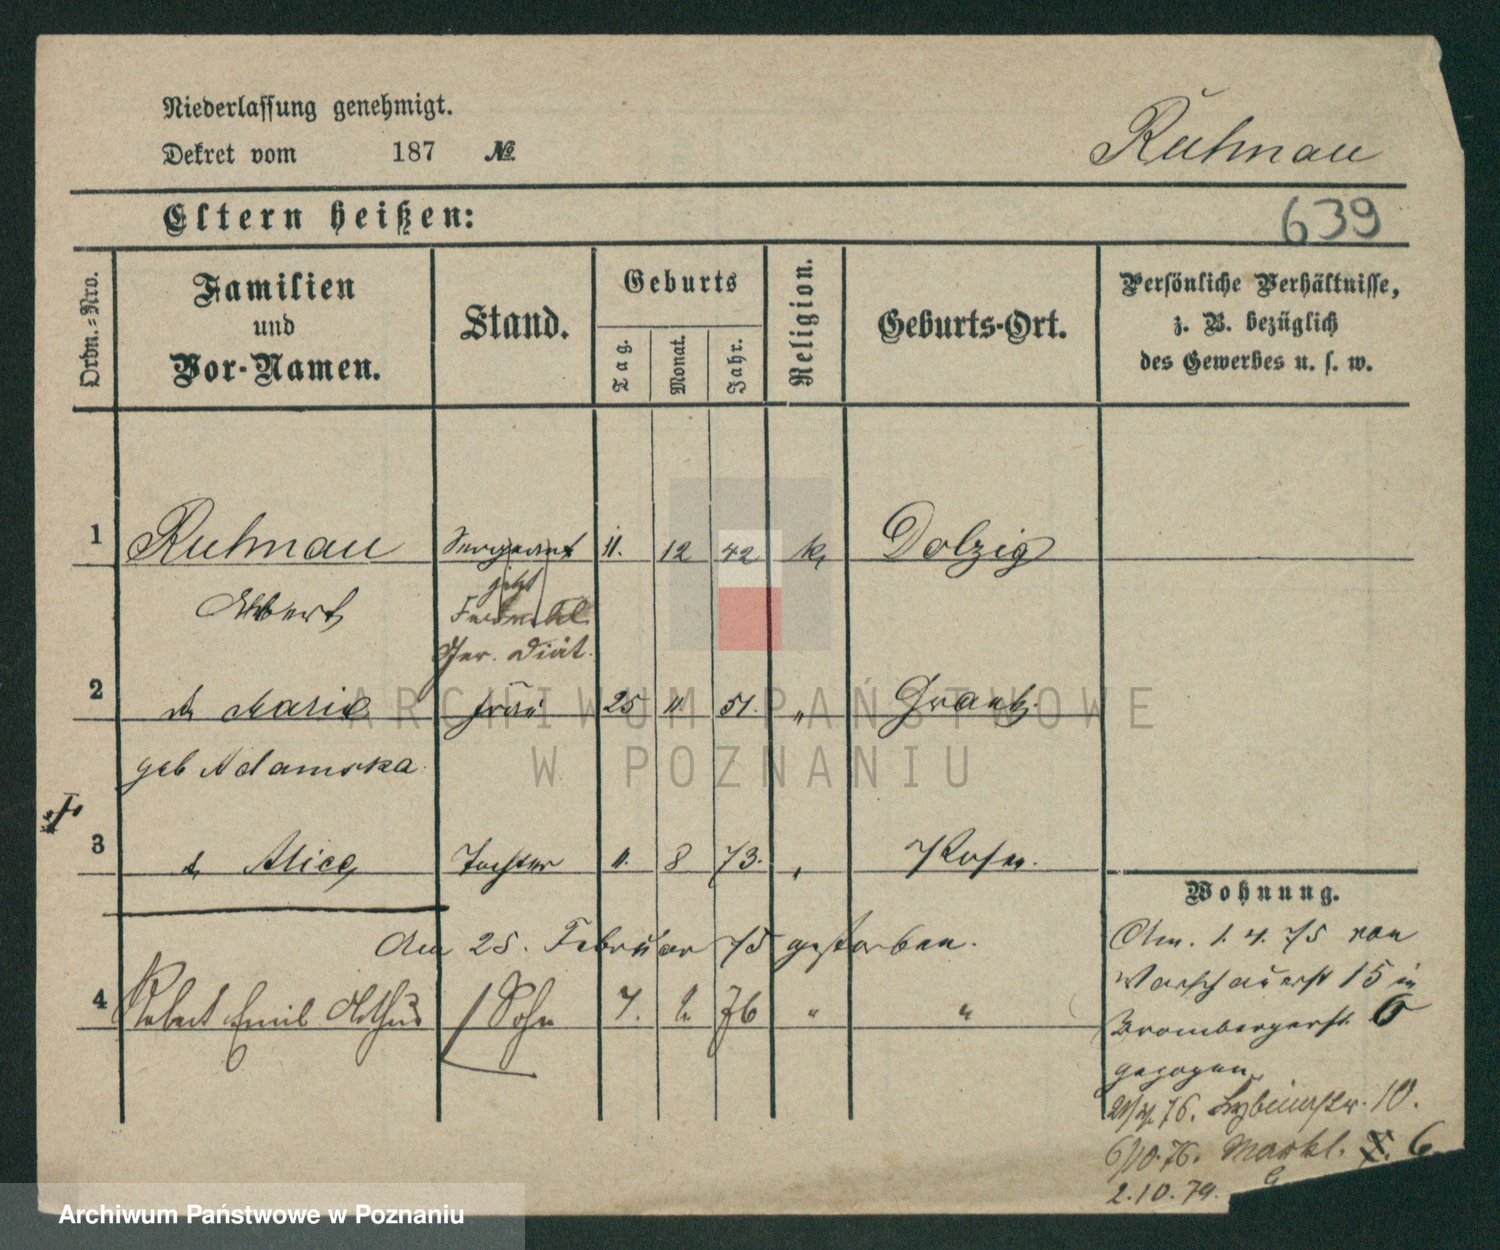 Niederlassung genehmigt.
Dekret vom 187 No
Ruhnau
Eltern heißen:
639
Ordn.-Nro.
Familien
und
Vor-Namen.
Stand.
Geburts
Tag.
Monat.
Jahr.
Religion.
Geburts-Ort.
Persönliche Verhältnisse,
z. B. bezüglich
des Gewerbes u. s. w.
1 Ruhnau Sergeant 11. 12 42 k. Dolzig
jetzt
Albert
Ger. Diät.
2 Marie Frau 25 11. 51. "
geb Adamska
3 Alice Tochter 11. 8 73. " Posen.
Wohnung.
Am 25. Februar 75 gestorben.
4 Robert Emil Arthur Sohn 7. 2. 76 " "
Am. 1. 4. 75 von
Warschauerst 15 in
Brombergerst. 6
gezogen
76. 10.
6/10.76. Markl. 6.
2.10.79.
ARCHIWUM PAŃSTWOWE
W POZNANIU
Archiwum Państwowe w Poznaniu